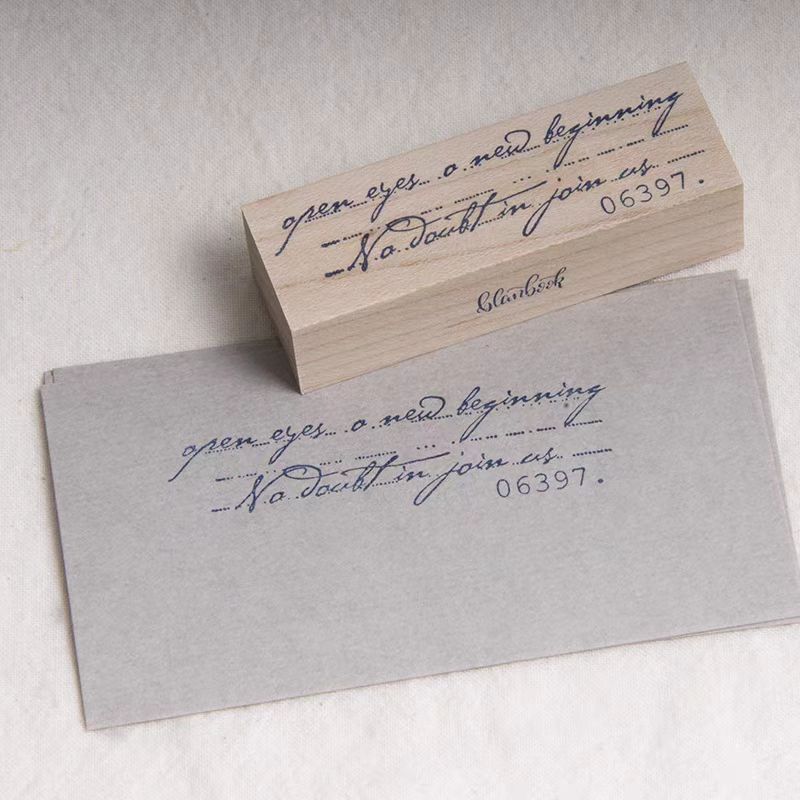 open eyes a new beginning
No doubt in join us
06397.
blanbook
open eyes a new beginning
No doubt in join us
06397.